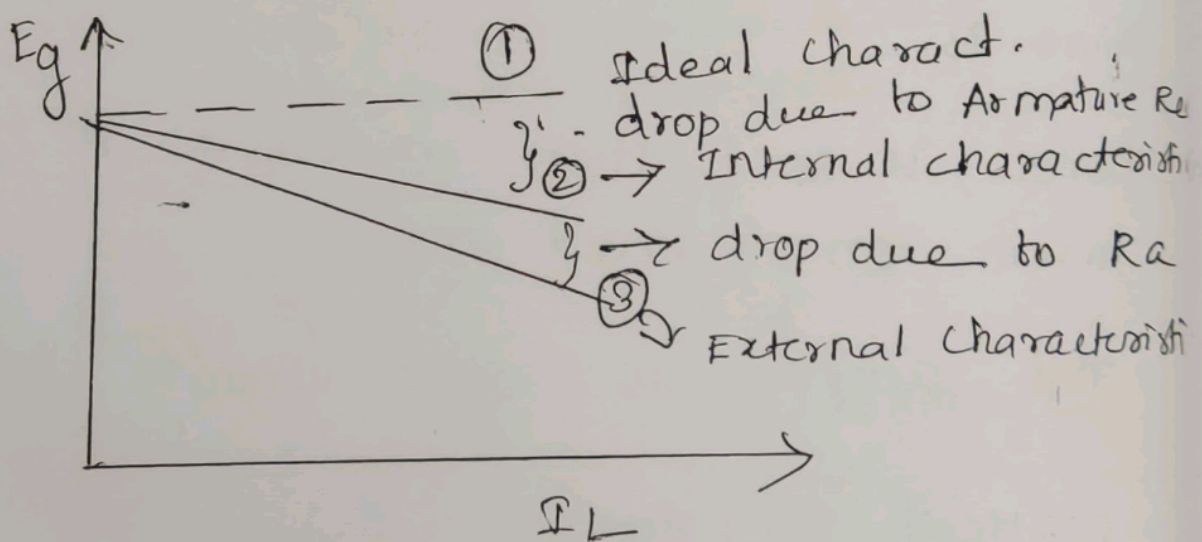 Eg
① Ideal charact.
drop due to Armature Re
② → Internal characteristi
→ drop due to Ra
③
External Characteristi
IL